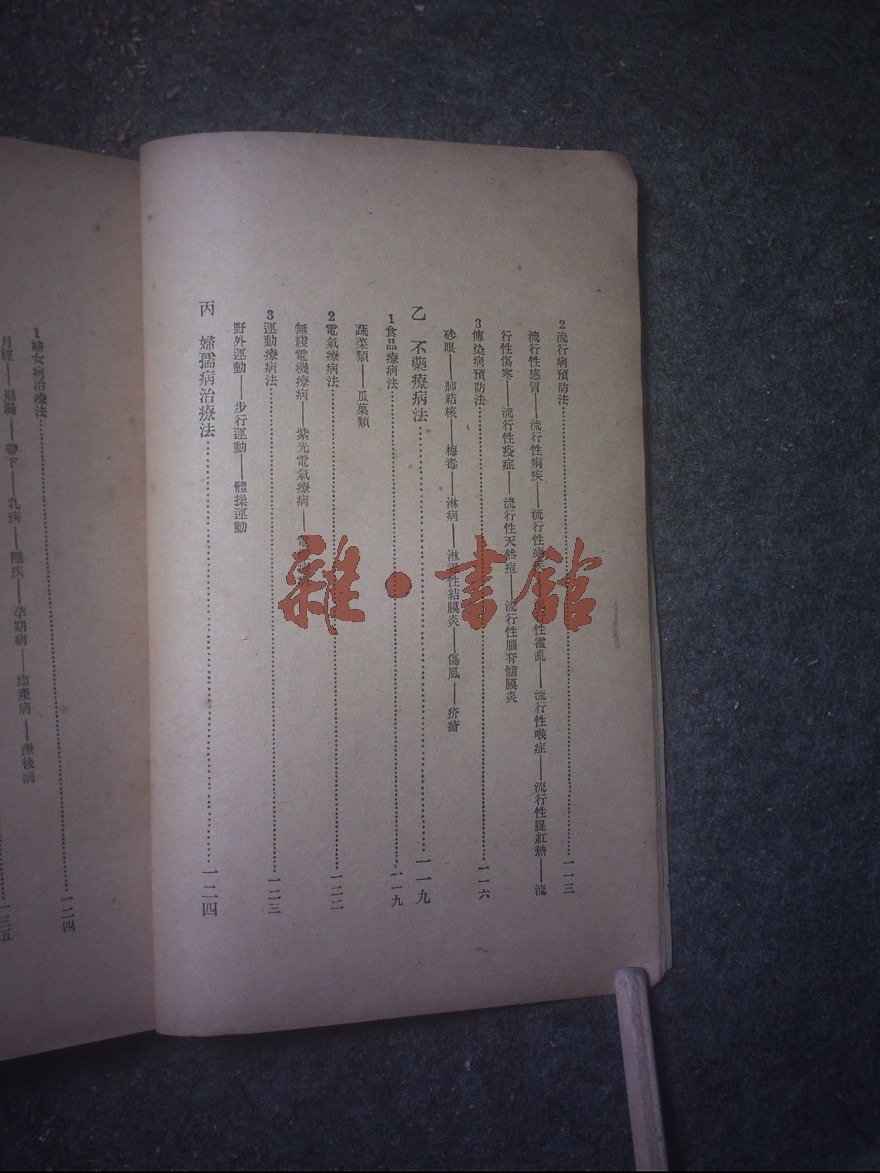 2 流行病預防法……一一三
流行性感冒——流行性痢疾——流行性 性霍亂——流行性喉症——流行性猩紅熱——流
行性傷寒——流行性疫症——流行性天然痘——流行性腦脊髓膜炎
3 傳染病預防法……一一六
砂眼——肺結核 梅毒——淋病——淋 性結膜炎——傷風——疥瘡
乙 不藥療病法……一一九
1 食品療病法……一一九
蔬菜類——瓜菓類
2 電氣療病法……一二二
無綫電機療病——紫光電氣療病——電
3 運動療病法……一二三
野外運動——步行運動——體操運動
丙 婦孺病治療法……一二四
1 婦女病治療法……一二四
月經——崩漏——帶下——乳疾——隱疾——孕期病——臨產病——產後病
一三五
雜·書館